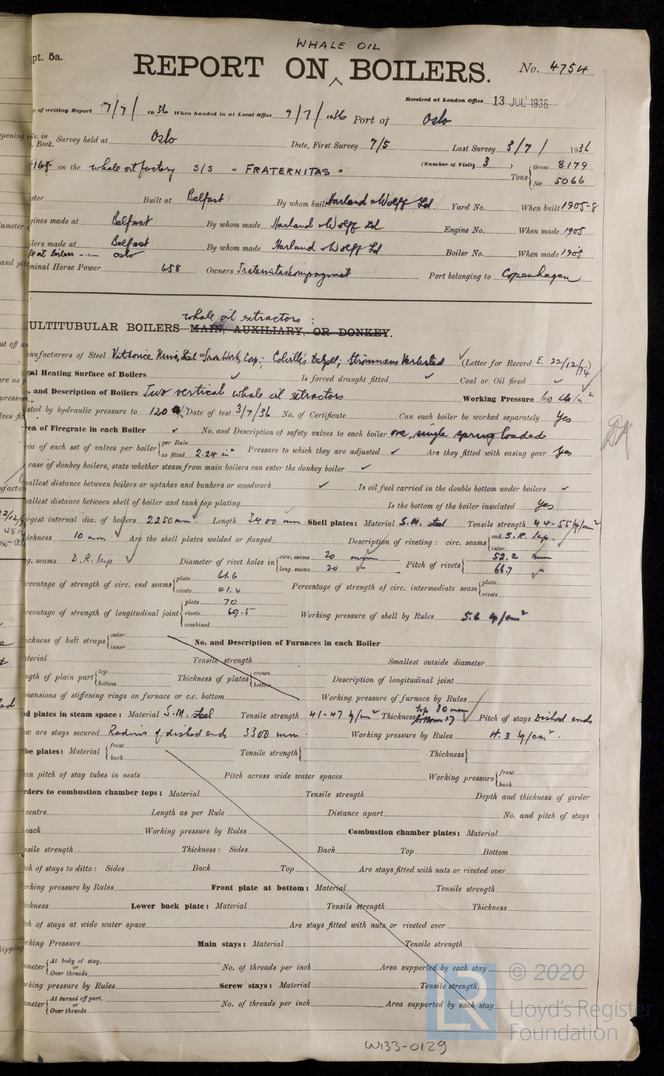 pt. 5a.
WHALE OIL
REPORT ON ^ BOILERS.
No. 4754
Received at London Office 13 JUL 1936
of writing Report 7/7/1936 When handed in at Local Office 9/7/1936 Port of Oslo
No. in Survey held at Oslo Date, First Survey 7/5 Last Survey 3/7/1936
Book. (Number of Visits 3) Gross 8179
on the whale oil factory S/S "FRATERNITAS" Tons Net 5066
Built at Belfast By whom built Harland & Wolff Ld Yard No. When built 1905-8
ines made at Belfast By whom made Harland & Wolff Ld Engine No. When made 1905
ilers made at Belfast By whom made Harland & Wolff Ld Boiler No. When made 1905
Oslo
minal Horse Power 658 Owners Port belonging to Copenhagen
whale oil extractors:
ULTITUBULAR BOILERS MAIN, AUXILIARY, OR DONKEY.
nufacturers of Steel (Letter for Record E. 22/12/
al Heating Surface of Boilers ✓ Is forced draught fitted ✓ Coal or Oil fired ✓
. and Description of Boilers Two vertical whale oil extractors Working Pressure 60 lb/in²
sted by hydraulic pressure to 120 Date of test 3/7/36 No. of Certificate Can each boiler be worked separately Yes
rea of Firegrate in each Boiler ✓ No. and Description of safety valves to each boiler one, single spring loaded
ea of each set of valves per boiler per Rule as fitted 2.24 in² Pressure to which they are adjusted ✓ Are they fitted with easing gear Yes
case of donkey boilers, state whether steam from main boilers can enter the donkey boiler ✓
mallest distance between boilers or uptakes and bunkers or woodwork ✓ Is oil fuel carried in the double bottom under boilers ✓
mallest distance between shell of boiler and tank top plating ✓ Is the bottom of the boiler insulated Yes
rgest internal dia. of boilers 2250 mm Length 3400 mm Shell plates: Material S.M. steel Tensile strength 44-55
hickness 10 mm Are the shell plates welded or flanged Description of riveting: circ. seams end S.R. lap. inter.
g. seams D.R. lap ✓ Diameter of rivet holes in circ. seams 20 mm long. seams 20 Pitch of rivets 52.2 mm 66.7
rcentage of strength of circ. end seams plate 61.6 rivets 41.4 Percentage of strength of circ. intermediate seam plate rivets
rcentage of strength of longitudinal joint plate 70 rivets 69.5 combined Working pressure of shell by Rules 5.6 kg/cm²
ickness of butt straps outer inner No. and Description of Furnaces in each Boiler
terial Tensile strength Smallest outside diameter
ngth of plain part top bottom Thickness of plates crown bottom Description of longitudinal joint
mensions of stiffening rings on furnace or c.c. bottom Working pressure of furnace by Rules
d plates in steam space: Material S.M. steel Tensile strength 41-47 Thickness top 20 mm bottom 17 Pitch of stays Dished ends
w are stays secured Radius of dished ends 3300 mm. Working pressure by Rules 4.3 kg/cm².
be plates: Material front back Tensile strength Thickness
an pitch of stay tubes in nests Pitch across wide water spaces Working pressure front back
rders to combustion chamber tops: Material Tensile strength Depth and thickness of girder
centre Length as per Rule Distance apart No. and pitch of stays
each Working pressure by Rules Combustion chamber plates: Material
nsile strength Thickness: Sides Back Top Bottom
tch of stays to ditto: Sides Back Top Are stays fitted with nuts or riveted over
rking pressure by Rules Front plate at bottom: Material Tensile strength
ickness Lower back plate: Material Tensile strength Thickness
tch of stays at wide water space Are stays fitted with nuts or riveted over
rking Pressure Main stays: Material Tensile strength
ameter At body of stay, or Over threads No. of threads per inch Area supported by each stay
rking pressure by Rules Screw stays: Material Tensile strength
ameter At turned off part, or Over threads No. of threads per inch Area supported by each stay
© 2020
LR
Lloyd's Register
Foundation
W133-0129